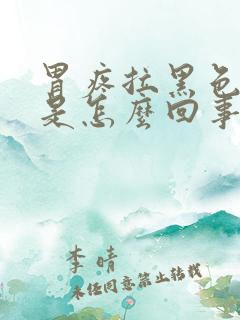 胃疼拉黑色
是怎麼回事
李晴
未经同意禁止转载